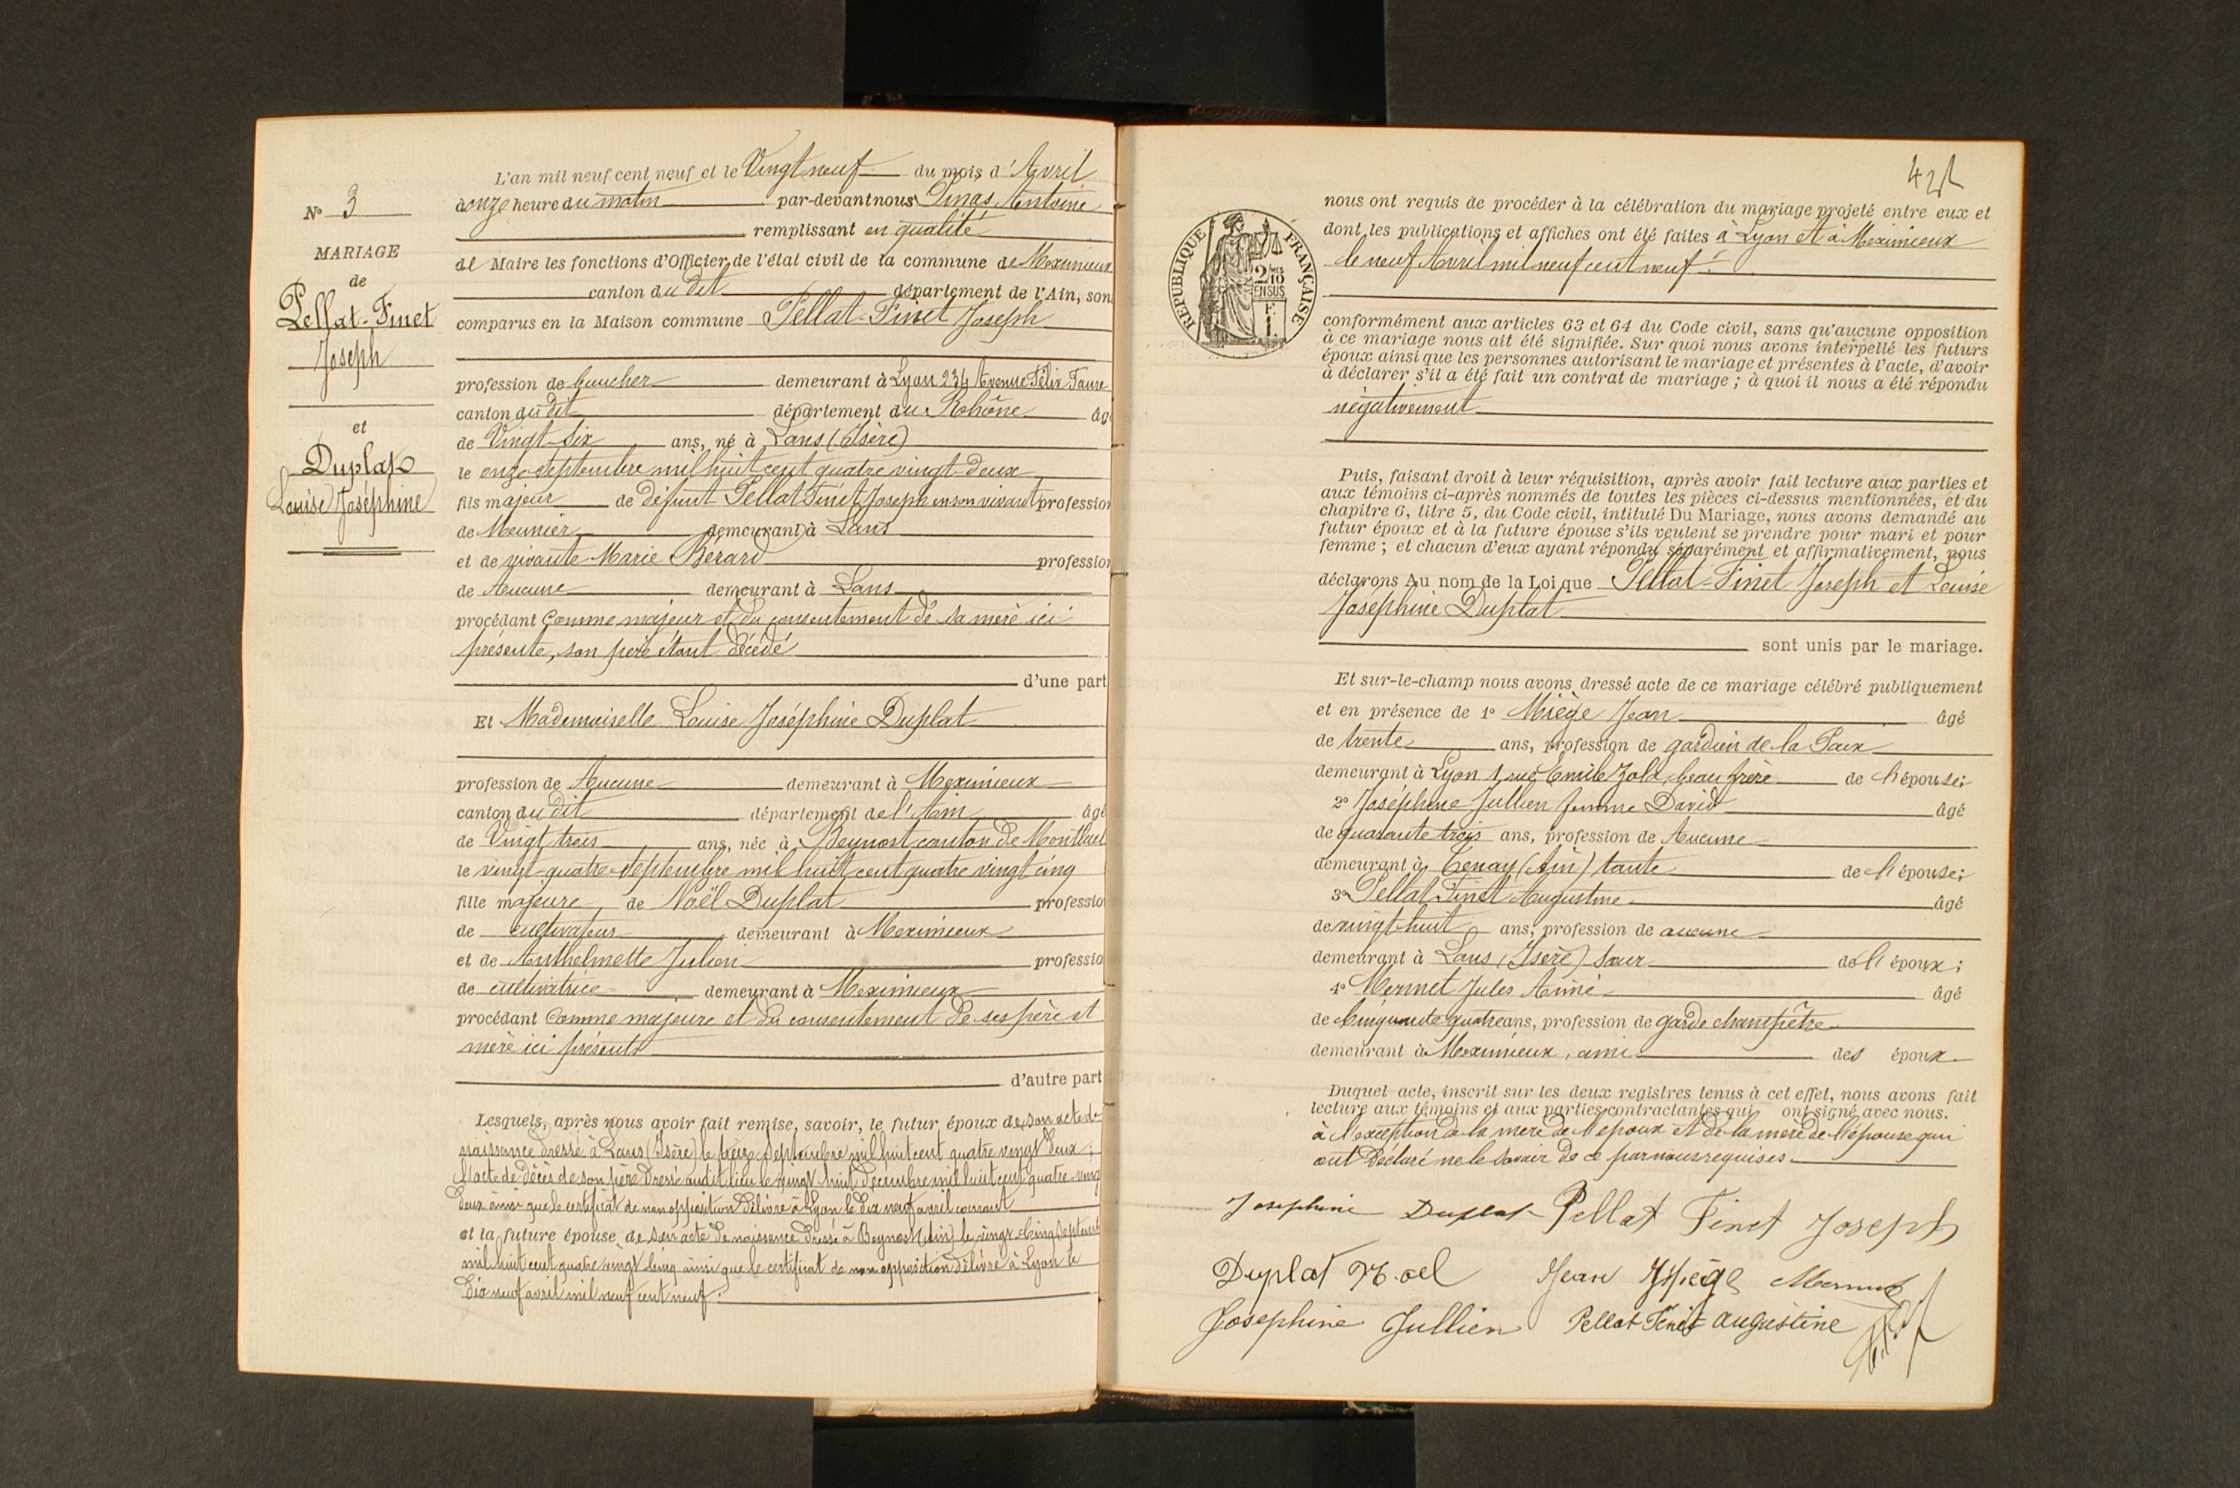 N° 3
MARIAGE
de
Pellat-Finet
Joseph
et
Duplat
Louise Joséphine
L'an mil neuf cent neuf et le Vingt neuf du mois d'Avril
à onze heure du matin par-devant nous Antoine
remplissant en qualité
de Maire les fonctions d'Officier de l'état civil de la commune de Meximieux
canton du dit département de l'Ain, son
comparus en la Maison commune Pellat-Finet Joseph
profession de boucher demeurant à Lyon 234 Avenue Félix Faure
canton du dit département du Rohône âgé
de Vingt-six ans, né à Lans (Isère)
le onze septembre mil huit cent quatre vingt-deux
fils majeur de défunt Pellat Finet Joseph en son vivant profession
de Meunier demeurant à Lans
et de vivante Marie Bérard profession
de Aucune demeurant à Lans
procédant Comme majeur et du consentement de sa mère ici
présente, son père étant décédé
d'une part
Et Mademoiselle Louise Joséphine Duplat
profession de Aucune demeurant à Meximieux
canton du dit département de l'Ain âgé
de Vingt trois ans, née à Beynost canton de Montluel
le vingt-quatre septembre mil huit cent quatre vingt cinq
fille majeure de Noël Duplat profession
de cultivateur demeurant à Meximieux
et de Anthelmette Julien profession
de cultivatrice demeurant à Meximieux
procédant Comme majeure et du consentement de ses père et
mère ici présents
d'autre part
Lesquels, après nous avoir fait remise, savoir, le futur époux de son acte de
naissance dressé à Lans (Isère) le treize septembre mil huit cent quatre vingt deux;
l'acte de décès de son père dressé audit lieu le vingt huit décembre mil huit cent quatre-vingt
deux ainsi que le certificat de non opposition délivré à Lyon le dix neuf avril courant
et la future épouse de son acte de naissance dressé à Beynost (Ain) le vingt-cinq septembre
mil huit cent quatre vingt cinq ainsi que le certificat de non opposition délivré à Lyon le
dix neuf avril mil neuf cent neuf.
RÉPUBLIQUE FRANÇAISE
2/10
EN SUS
F.
1.
nous ont requis de procéder à la célébration du mariage projeté entre eux et
dont les publications et affiches ont été faites à Lyon et à Meximieux
le neuf Avril mil neuf cent neuf.
conformément aux articles 63 et 64 du Code civil, sans qu'aucune opposition
à ce mariage nous ait été signifiée. Sur quoi nous avons interpellé les futurs
époux ainsi que les personnes autorisant le mariage et présentes à l'acte, d'avoir
à déclarer s'il a été fait un contrat de mariage ; à quoi il nous a été répondu
négativement
Puis, faisant droit à leur réquisition, après avoir fait lecture aux parties et
aux témoins ci-après nommés de toutes les pièces ci-dessus mentionnées, et du
chapitre 6, titre 5, du Code civil, intitulé Du Mariage, nous avons demandé au
futur époux et à la future épouse s'ils veulent se prendre pour mari et pour
femme ; et chacun d'eux ayant répondu séparément et affirmativement, nous
déclarons Au nom de la Loi que Pellat-Finet Joseph et Louise
Joséphine Duplat
sont unis par le mariage.
Et sur-le-champ nous avons dressé acte de ce mariage célébré publiquement
et en présence de 1° Miège Jean âgé
de trente ans, profession de gardien de la Paix
demeurant à Lyon 1, rue Emile Zola, beau frère de l'épouse;
2° Joséphine Jullien femme David âgé
de quarante trois ans, profession de Aucune
demeurant à Tenay (Ain) tante de l'épouse;
3° Pellat Finet Augustine âgé
de vingt-huit ans, profession de aucune
demeurant à Lans (Isère) sœur de l'époux;
4° Mermet Jules Aimé âgé
de Cinquante quatre ans, profession de garde champêtre
demeurant à Meximieux, ami des époux
Duquel acte, inscrit sur les deux registres tenus à cet effet, nous avons fait
lecture aux témoins et aux parties contractantes qui ont signé avec nous.
à l'exception de la mère de l'époux et de la mère de l'épouse qui
ont déclaré ne le savoir de ce par nous requises.
Josephine Duplat Pellat Finet Joseph
Duplat Noel Jean Miège Mermet
Josephine Jullien Pellat Finet Augustine